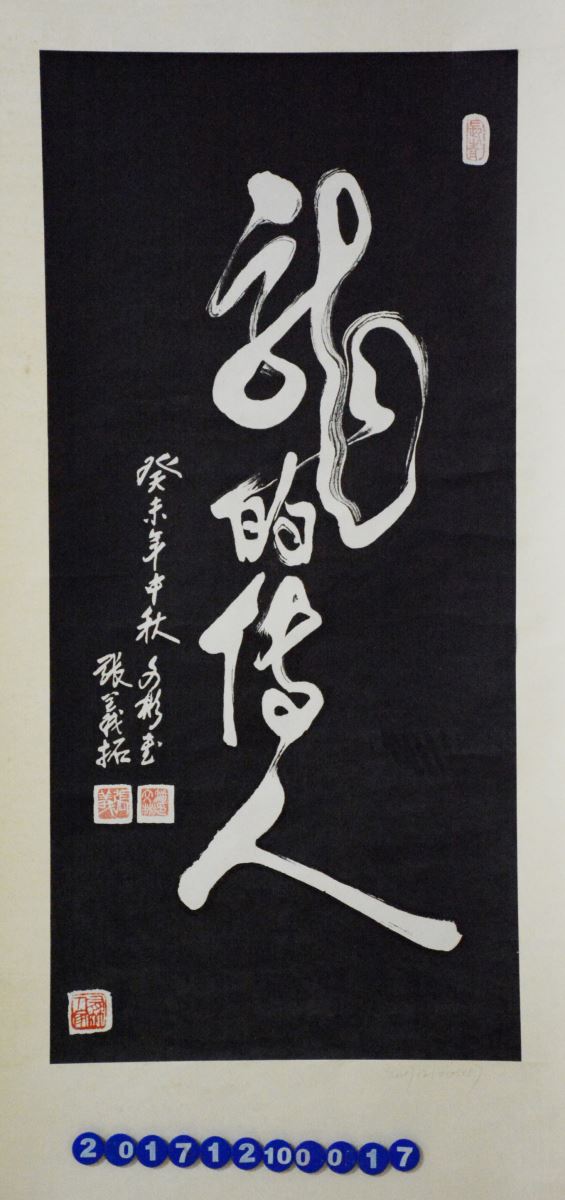 龍的傳人
癸未年中秋
文彬書
張義拓
2017121000017